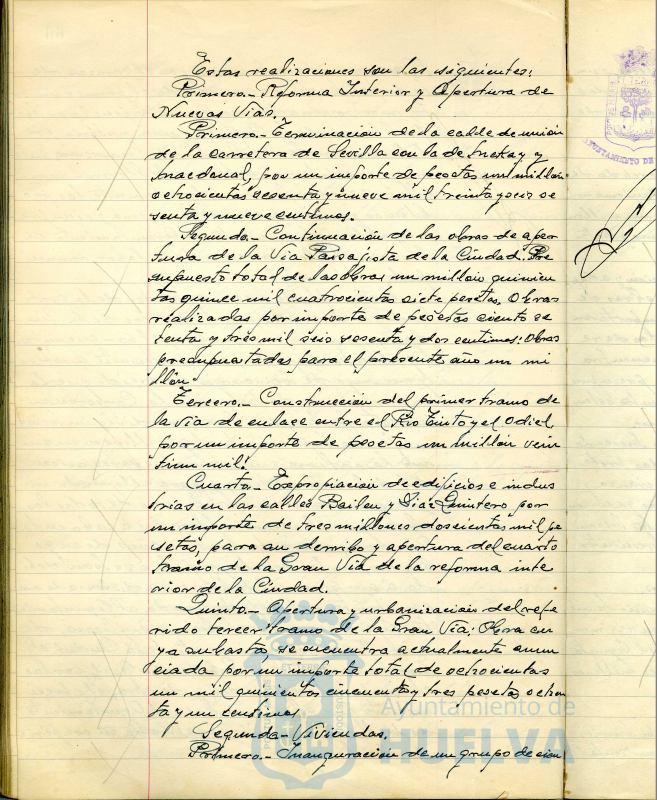 Estas realizaciones son las siguientes:
Primero.- Rforma Interior y Apertura de
Nuevas Vías.
Primero.- Terminación de la calle de unión
de la carretera de Sevilla con la de
por un importe de pesetas un millón
ochocientas sesenta y nueve mil treinta y seis se
senta y nueve centimos.
Segundo.- Continuación de las obras de aper
tura de la Via Paisajista de la Ciudad. Pre
supuesto total de las obras un millón quinien
tas quince mil cuatrocientas siete pesetas. Obras
realizadas por importe de pesetas ciento se
tenta y tres mil seis sesenta y dos centimos: Obras
presupuestadas para el presente año un mi
llón.
Tercero.- Construcción del primer tramo de
la via de enlace entre el Rio Tinto y el Odiel
por un importe de pesetas un millón vein
tiun mil.
Cuarto.- Expropiación de edificios e indus
trias en las calles Bailen y Diaz Quintero por
un importe de tres millones doscientas mil pe
setas, para su derribo y apertura del cuarto
tramo de la Gran Via de la reforma inte
rior de la Ciudad.
Quinto.- Apertura y urbanización del refe
rido tercer tramo de la Gran Via: Obra cu
ya subasta se encuentra actualmente anun
ciada por un importe total de ochocientas
un mil quinientas cincuenta y tres pesetas ochen
ta y un centimos
Segunda.- Viviendas.
Primero.- Inauguración de un grupo de cien
Ayuntamiento de
HUELVA
AYUNTAMIENTO DE